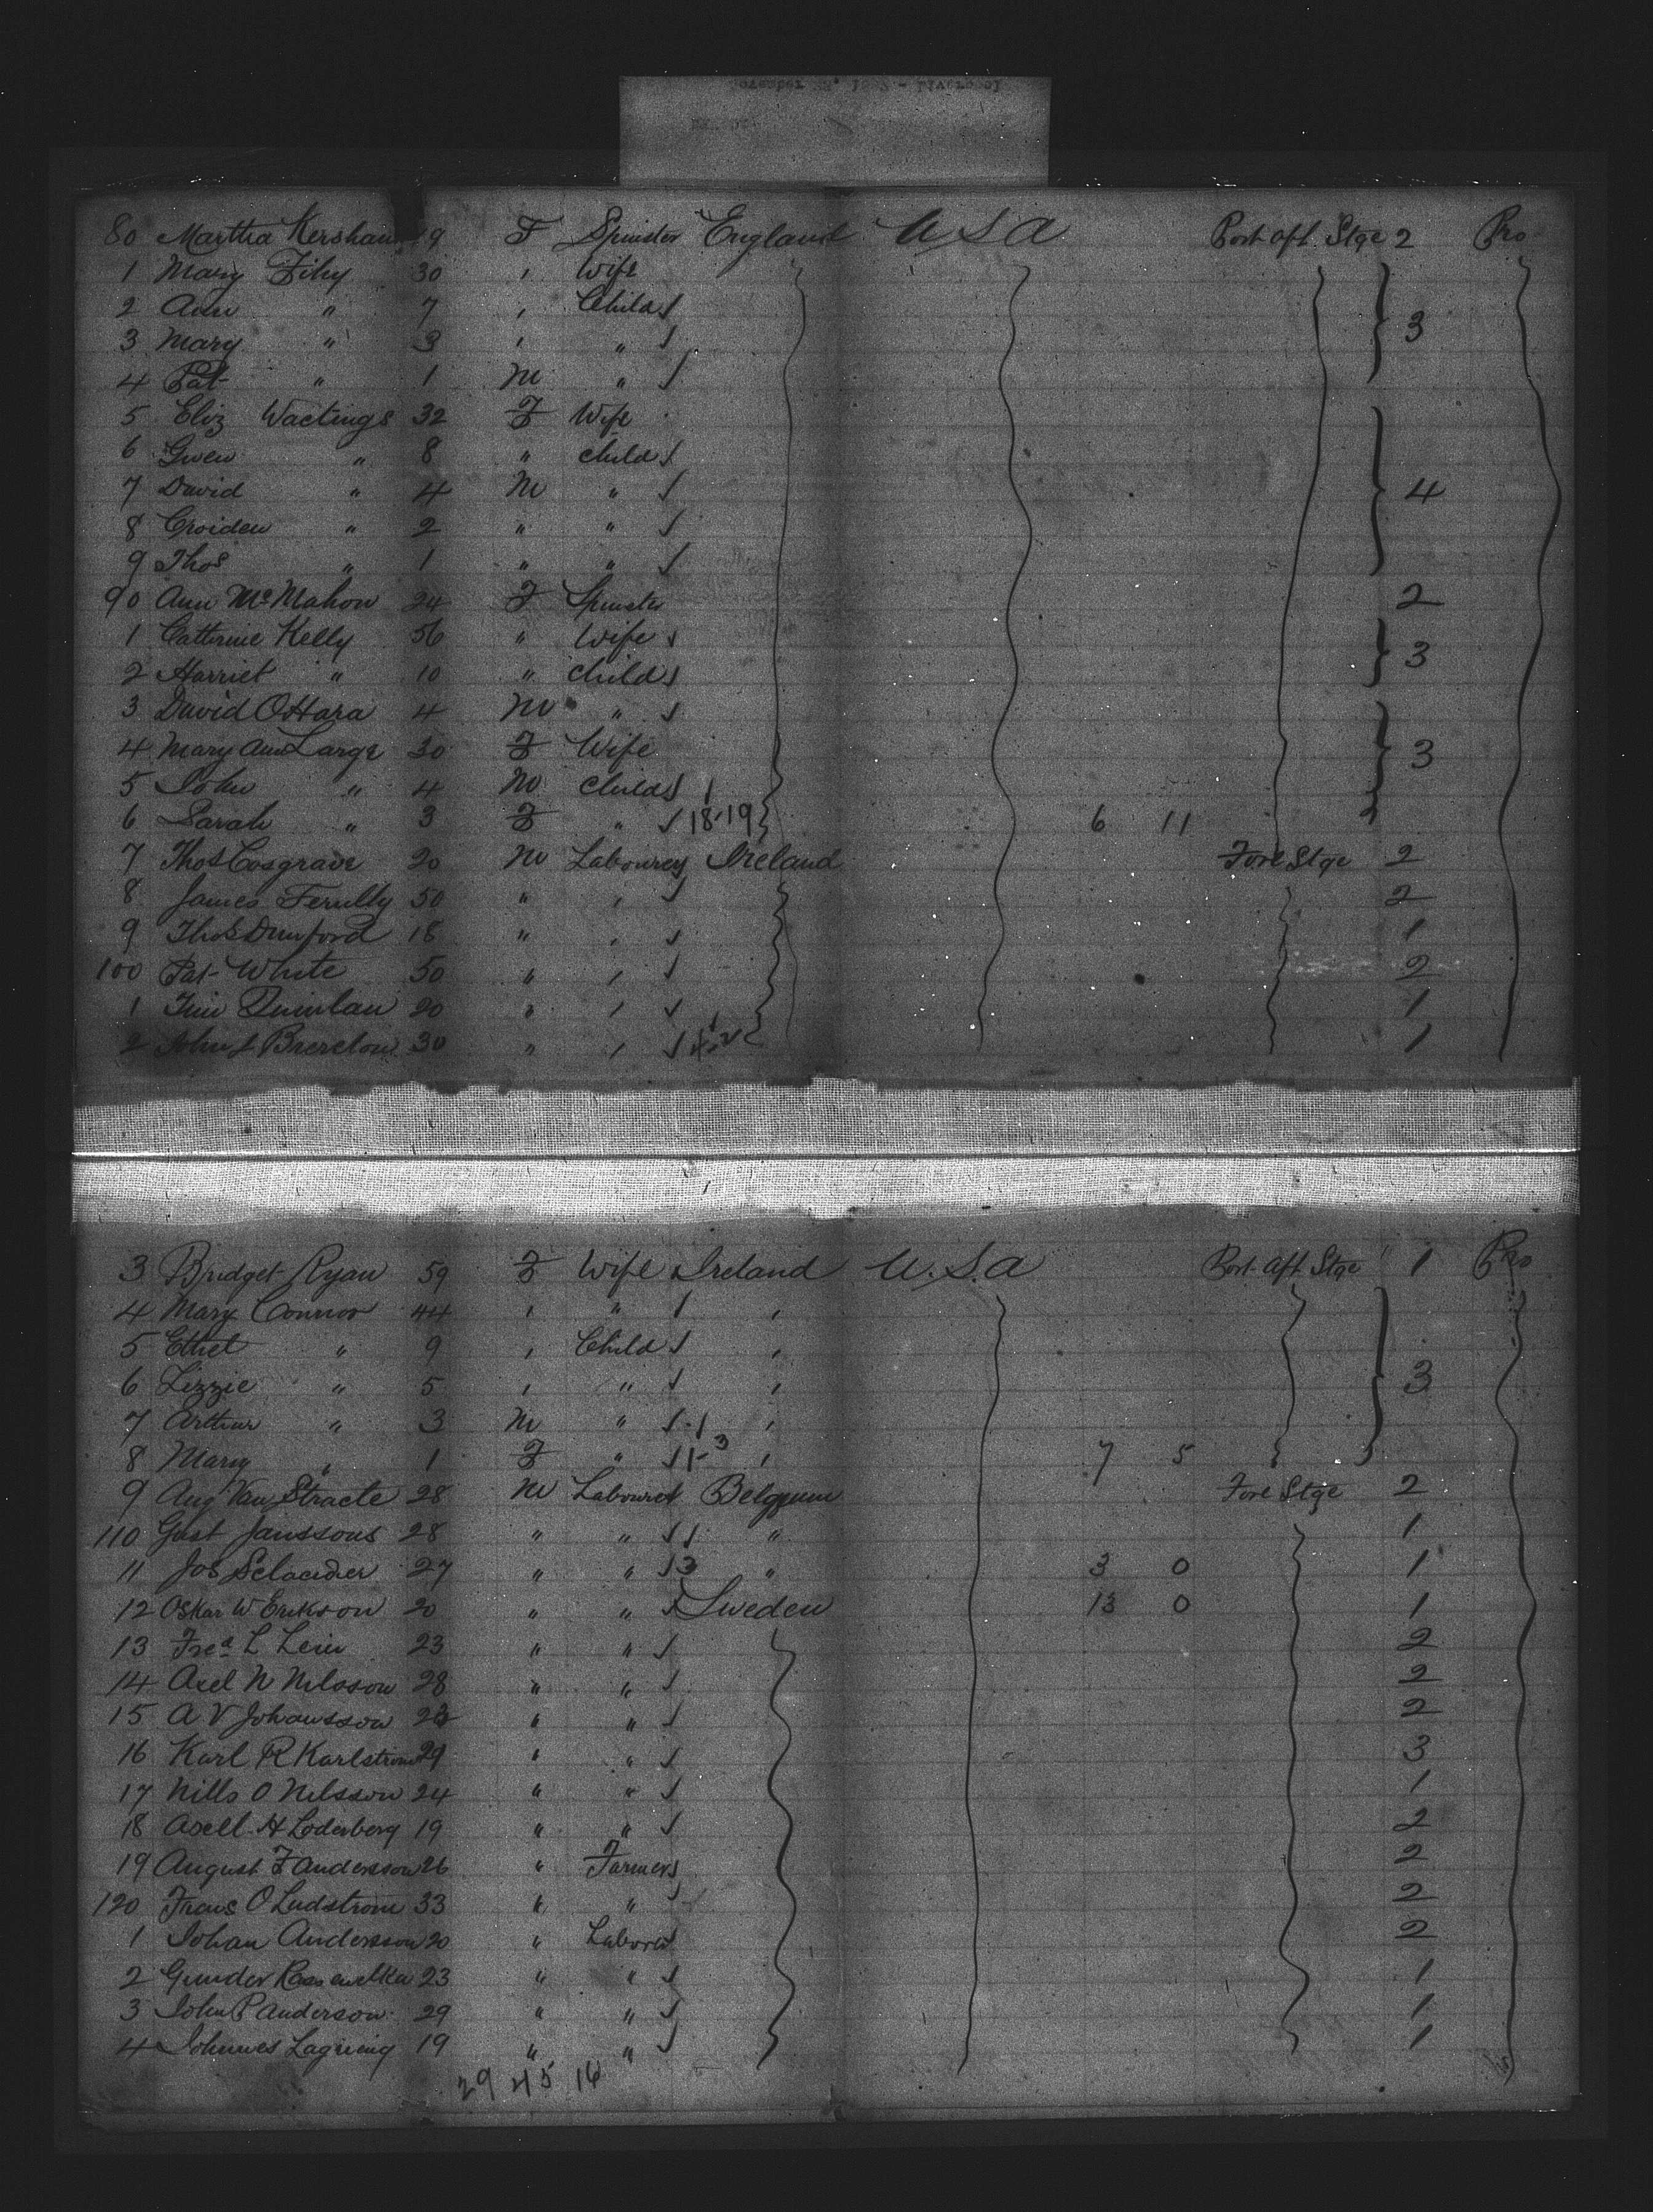 80 Martha Kershaw 19 F Spinster England U S A Port Aft Stge 2 Pro
1 Mary 30 , Wife
2 Ann " 7 , Child
3 Mary " 3 , " 3
4 Pat " 1 M "
5 Eliz 32 F Wife
6 Gwen " 8 " Child
7 David " 4 M " 4
8 Croiden " 2 " "
9 Thos " 1 " "
90 Ann McMahon 24 F Spinster 2
1 Catherine Kelly 56 " Wife
2 Harriet " 10 " Child 3
3 David O'Hara 4 M "
4 Mary Ann Large 30 F Wife 3
5 John " 4 M Child 1
6 Sarah " 3 F " 18-19 6 11
7 Thos Cosgrave 20 M Labourer Ireland Fore Stge 2
8 James 50 " , 2
9 Thos Dunford 18 " , 1
100 Pat White 50 " , 2
1 Tim Quinlan 20 " , 1
2 John J Brereton 30 " , 1
3 Bridget Ryan 59 F Wife Ireland U.S.A Port Aft Stge 1 Pro
4 Mary Connor 44 , " ,
5 Ethel " 9 , Child ,
6 Lizzie " 5 , " , 3
7 Arthur " 3 M " ,
8 Mary " 1 F " 1-3 , 7 5
9 Aug Van Stracte 28 M Labourer Belgium Fore Stge 2
110 Gust Janssons 28 " " " 1
11 Jos 27 " " 3 " 3 0 1
12 Oskar W Erikson 20 " " Sweden 13 0 1
13 Fred L 23 " " 2
14 Axel N Nilsson 28 " " 2
15 A V Johansson 23 " " 2
16 Karl R Karlstrom 29 " " 3
17 Nills O Nilsson 24 " " 1
18 Axell H Loderberg 19 " " 2
19 August F Andersson 26 " Farmers 2
120 Frans O Ludstrom 33 " " 2
1 Johan Andersson 20 " Labored 2
2 Gunder 23 " " 1
3 John P Anderson 29 " " 1
4 Johnnes 19 " " 1
29 45 16